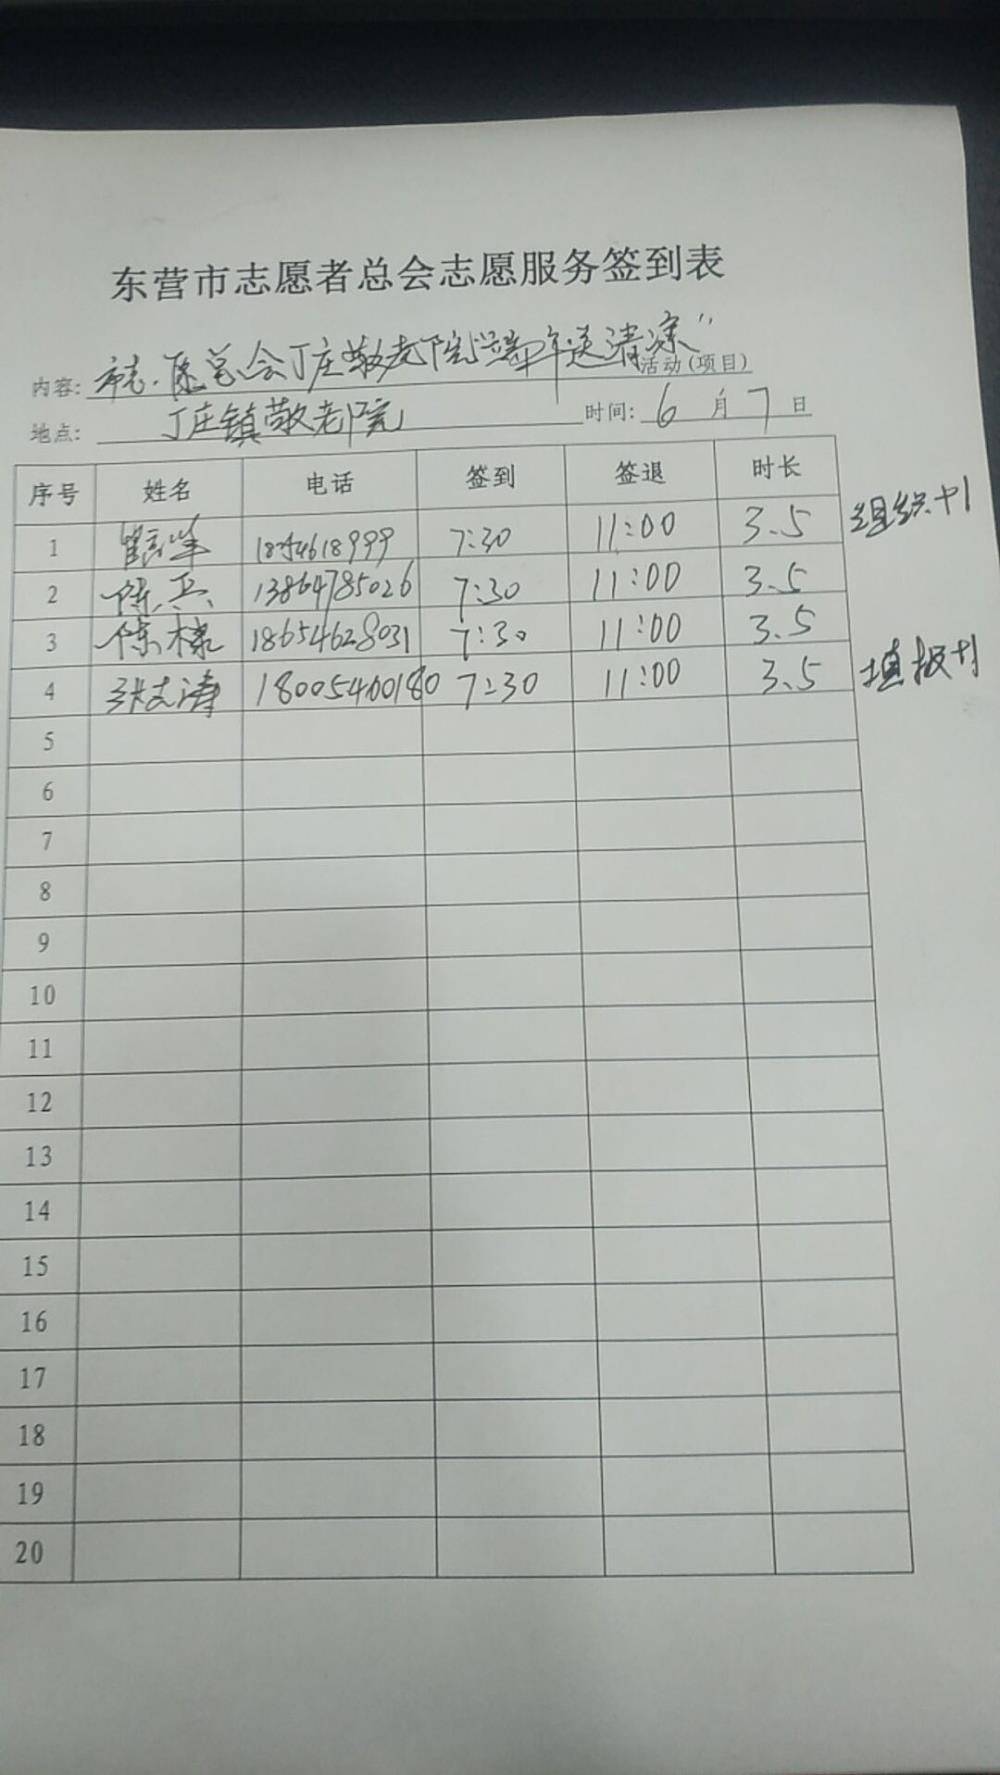 东营市志愿者总会志愿服务签到表
内容: 市志愿总会丁庄敬老院端午送清凉” 活动(项目)
地点: 丁庄镇敬老院 时间: 6 月 7 日
序号 姓名 电话 签到 签退 时长
1 7:30 11:00 3.5 组织+1
2 陈兵 13864785026 7:30 11:00 3.5
3 陈棣 18654628031 7:30 11:00 3.5
4 张文涛 18005460180 7:30 11:00 3.5 填报+1
5
6
7
8
9
10
11
12
13
14
15
16
17
18
19
20